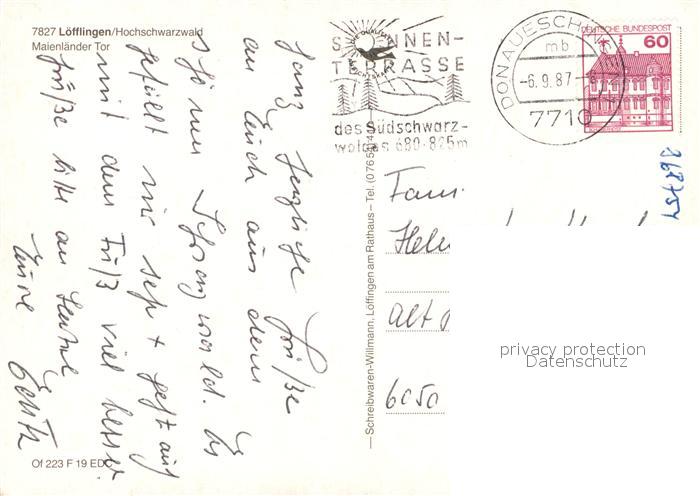 7827 Löfflingen/Hochschwarzwald
Maienländer Tor
Ganz herzliche Grüße
an Euch aus dem
schönen Schwarzwald. Es
gefällt mir sehr + geht auch
mit dem Fuß viel besser.
Grüße bitte an
Eure
Of 223 F 19 EDC
— Schreibwaren-Willmann, Löffingen am Rathaus – Tel. (0765
S NNEN-
TERRASSE
des Südschwarz-
waldes 680-825m
DONAUESCHINGEN
mb
-6.9.87-
7710
DEUTSCHE BUNDESPOST
60
368754
Fam.
Hele
Alt
6050
privacy protection
Datenschutz